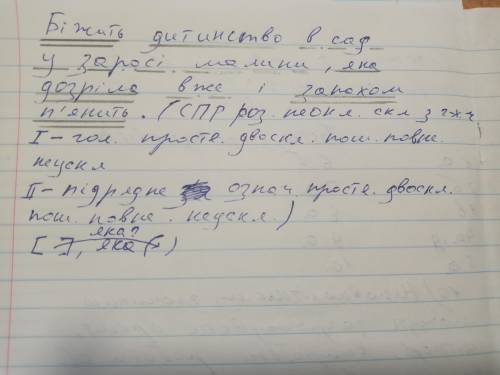 Біжить дитинство в сад
у заросі малини, яка
дозріла вже і запахом
п'янить. (СПР роз. неокл. скл з 2х ч.
I - гол. просте. двоскл. пош. повне.
неускл
II - підрядне означ. просте. двоскл.
пош. повне. неускл.)
яка?
[ ], яка ( )